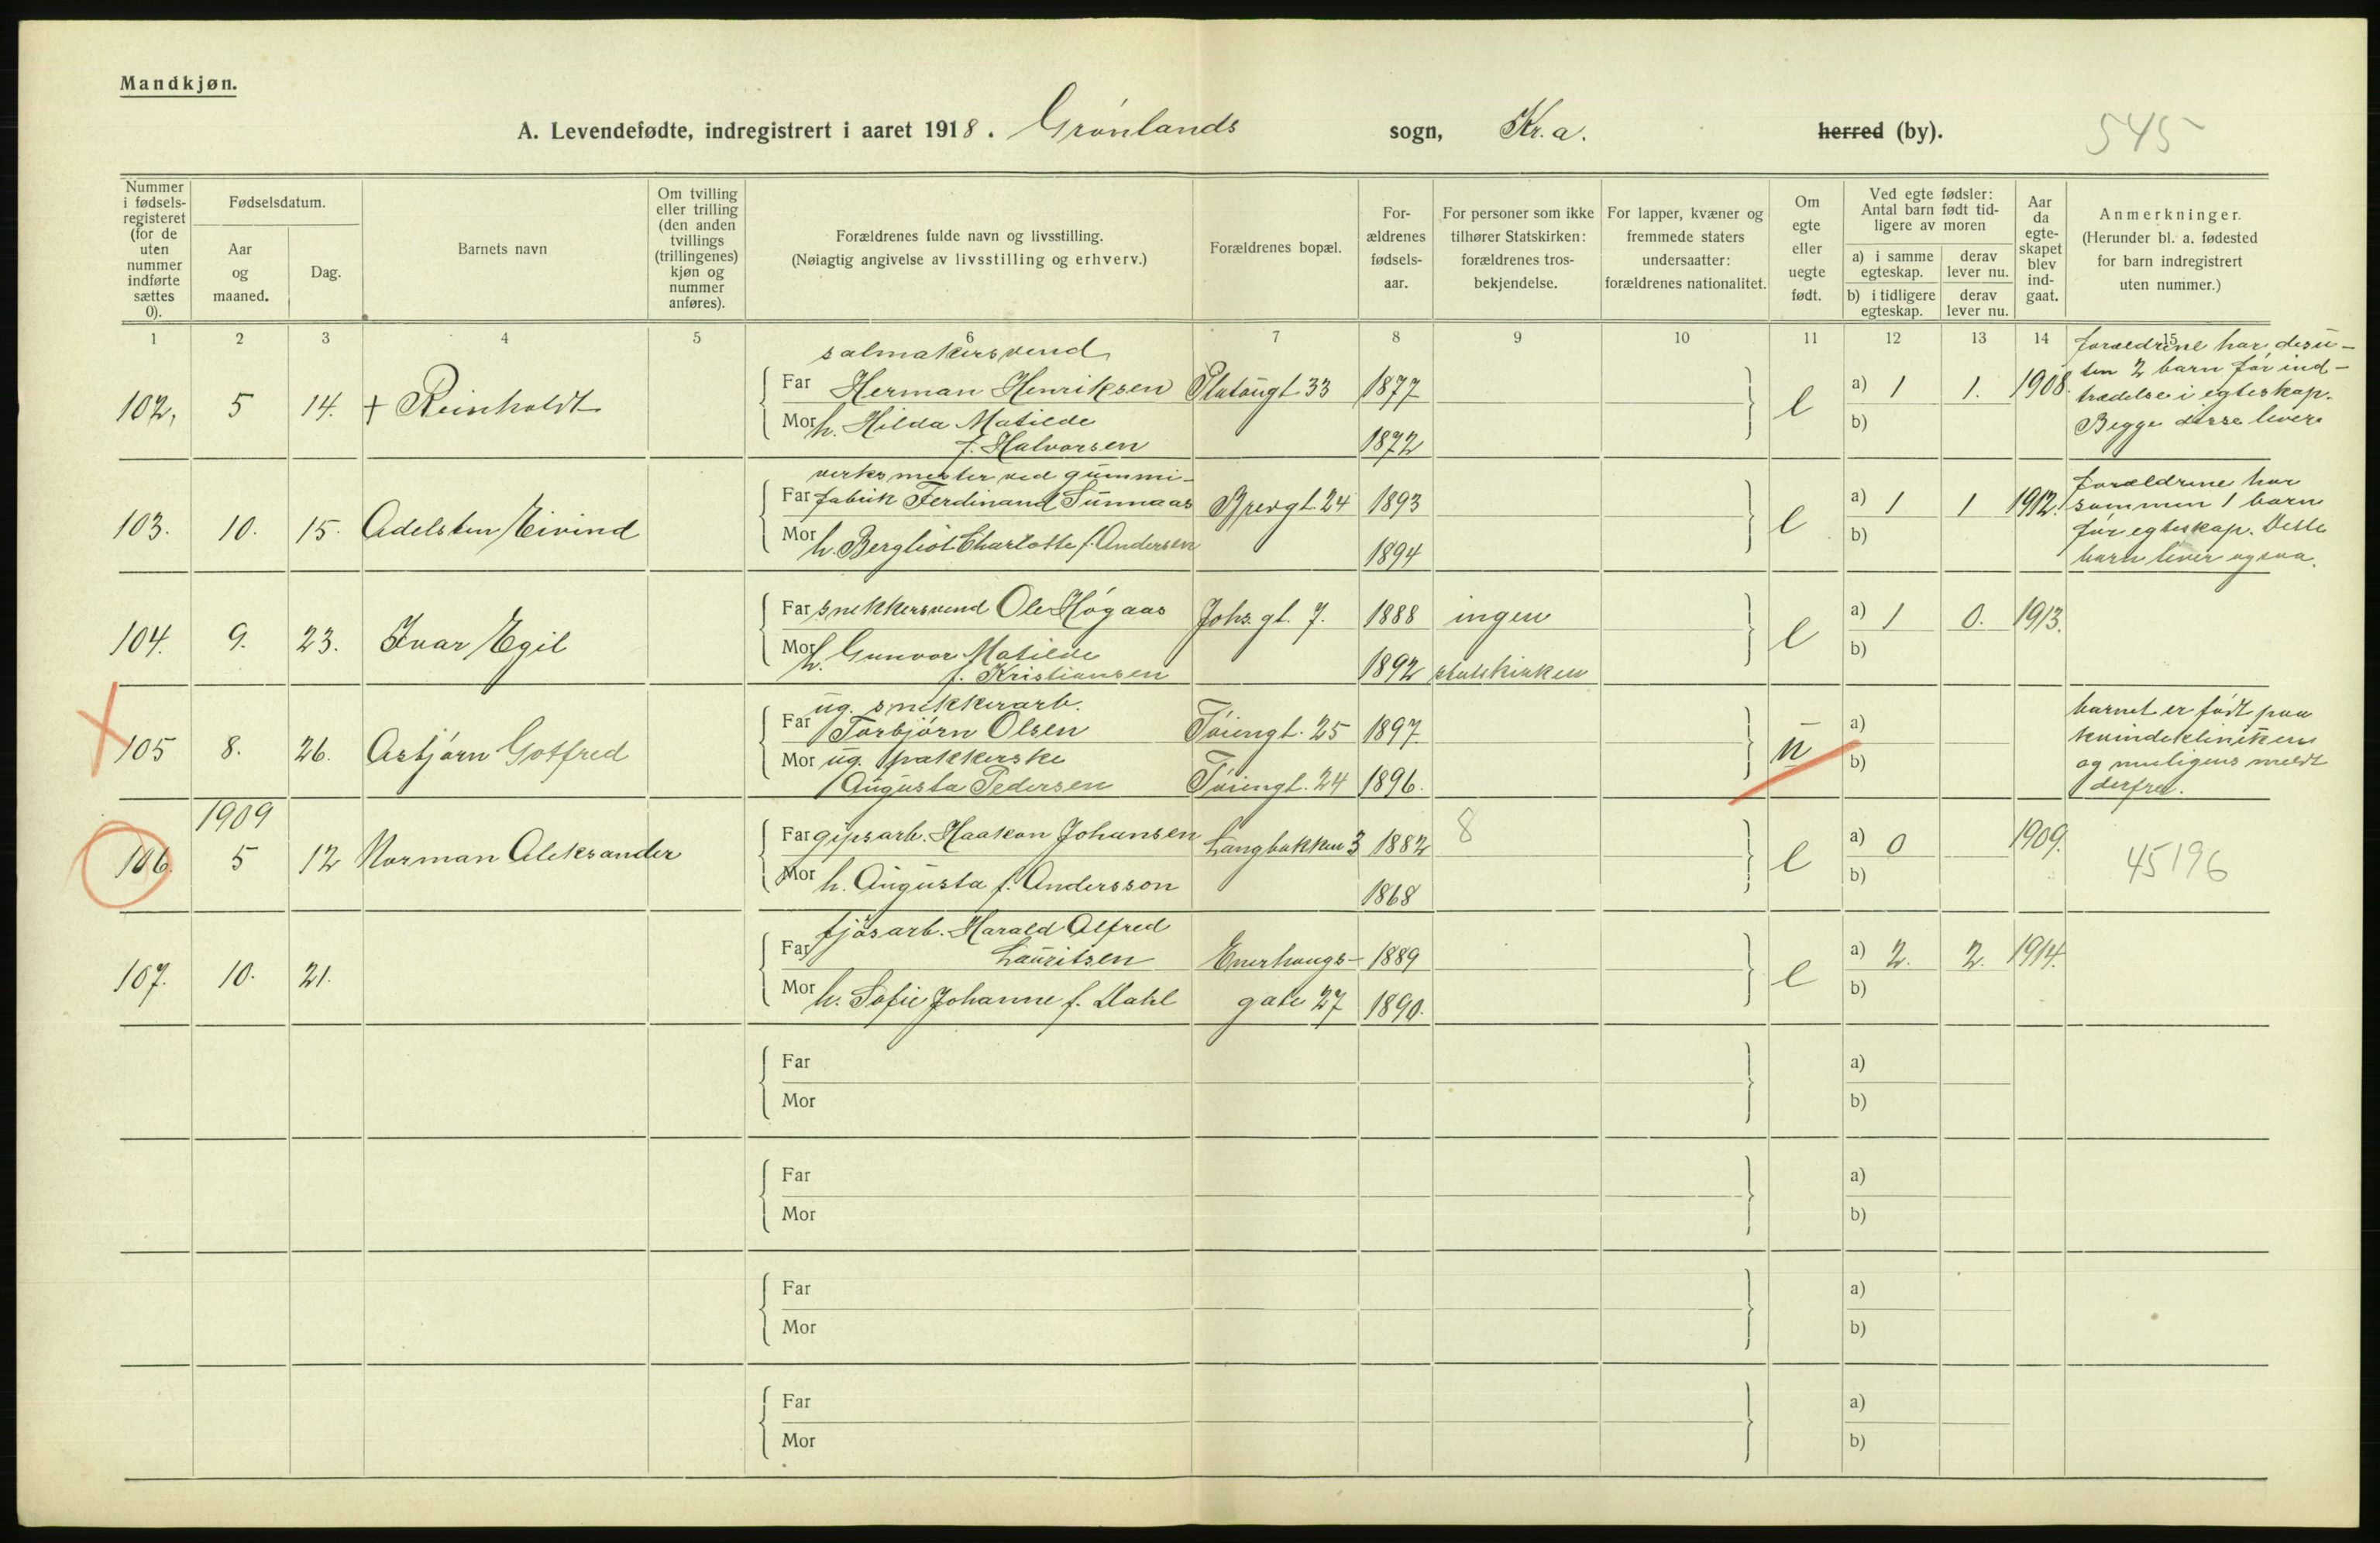 Mandkjøn.
A. Levendefødte, indregistrert i aaret 1918. Grønlands sogn, Kr.a. herred (by). 545
Nummer i fødsels-registeret (for de uten nummer indførte sættes 0).
Fødselsdatum.
Aar og maaned.
Dag.
Barnets navn
Om tvilling eller trilling (den anden tvillings (trillingenes) kjøn og nummer anføres).
Forældrenes fulde navn og livsstilling.
(Nøiagtig angivelse av livsstilling og erhverv.)
Forældrenes bopæl.
For-ældrenes fødsels-aar.
For personer som ikke tilhører Statskirken: forældrenes tros-bekjendelse.
For lapper, kvæner og fremmede staters undersaatter: forældrenes nationalitet.
Om egte eller uegte født.
Ved egte fødsler: Antal barn født tid-ligere av moren
a) i samme egteskap.
derav lever nu.
b) i tidligere egteskap.
derav lever nu.
Aar da egte-skapet blev ind-gaat.
Anmerkninger.
(Herunder bl. a. fødested for barn indregistrert uten nummer.)
1 2 3 4 5 6 7 8 9 10 11 12 13 14 15
salmakersvend
102, 5 14. + Reinholdt Far Herman Henriksen Platougt. 33 1877 e a) 1 1. 1908.
Mor h. Hilda Matilde
f. Halvorsen 1872 b)
forældrene har desu-
ten 2 barn før ind-
trædelse i egteskap.
Begge disse lever
verksmester ved gummi-
103. 10. 15. Adelsten Eivind Far fabrik Ferdinand Sunnaas Brevgt. 24 1893 e a) 1 1 1912.
Mor h. Bergliot Charlotte f. Andersen 1894 b)
forældrene har
sammen 1 barn
før egteskap. Dette
barn lever ogsaa.
104. 9. 23. Ivar Egil Far snekkersvend Ole Høgaas Johs. gt. 7. 1888 ingen e a) 1 0. 1913.
Mor h. Gunvor Matilde
f. Kristiansen 1892 statskirken b)
ug. snekkerarb.
105 8. 26. Asbjørn Gotfred Far Torbjørn Olsen Tøiengt. 25 1897. u a)
Mor ug. pakkerske
Augusta Pedersen Tøiengt. 24 1896. b)
barnet er født paa
kvindeklinikken
og muligens meldt
derfra.
1909
106. 5 12 Norman Aleksander Far gipsarb. Haakon Johansen Langbakken 3 1882 8 e a) 0 1909. 45196
Mor h. Augusta f. Andersson 1868 b)
fjøsarb. Harald Alfred
107. 10. 21. Far Lauritsen Enerhaugs- 1889 e a) 2. 2. 1914.
Mor h. Sofie Johanne f. Dahl gate 27 1890. b)
Far a)
Mor b)
Far a)
Mor b)
Far a)
Mor b)
Far a)
Mor b)